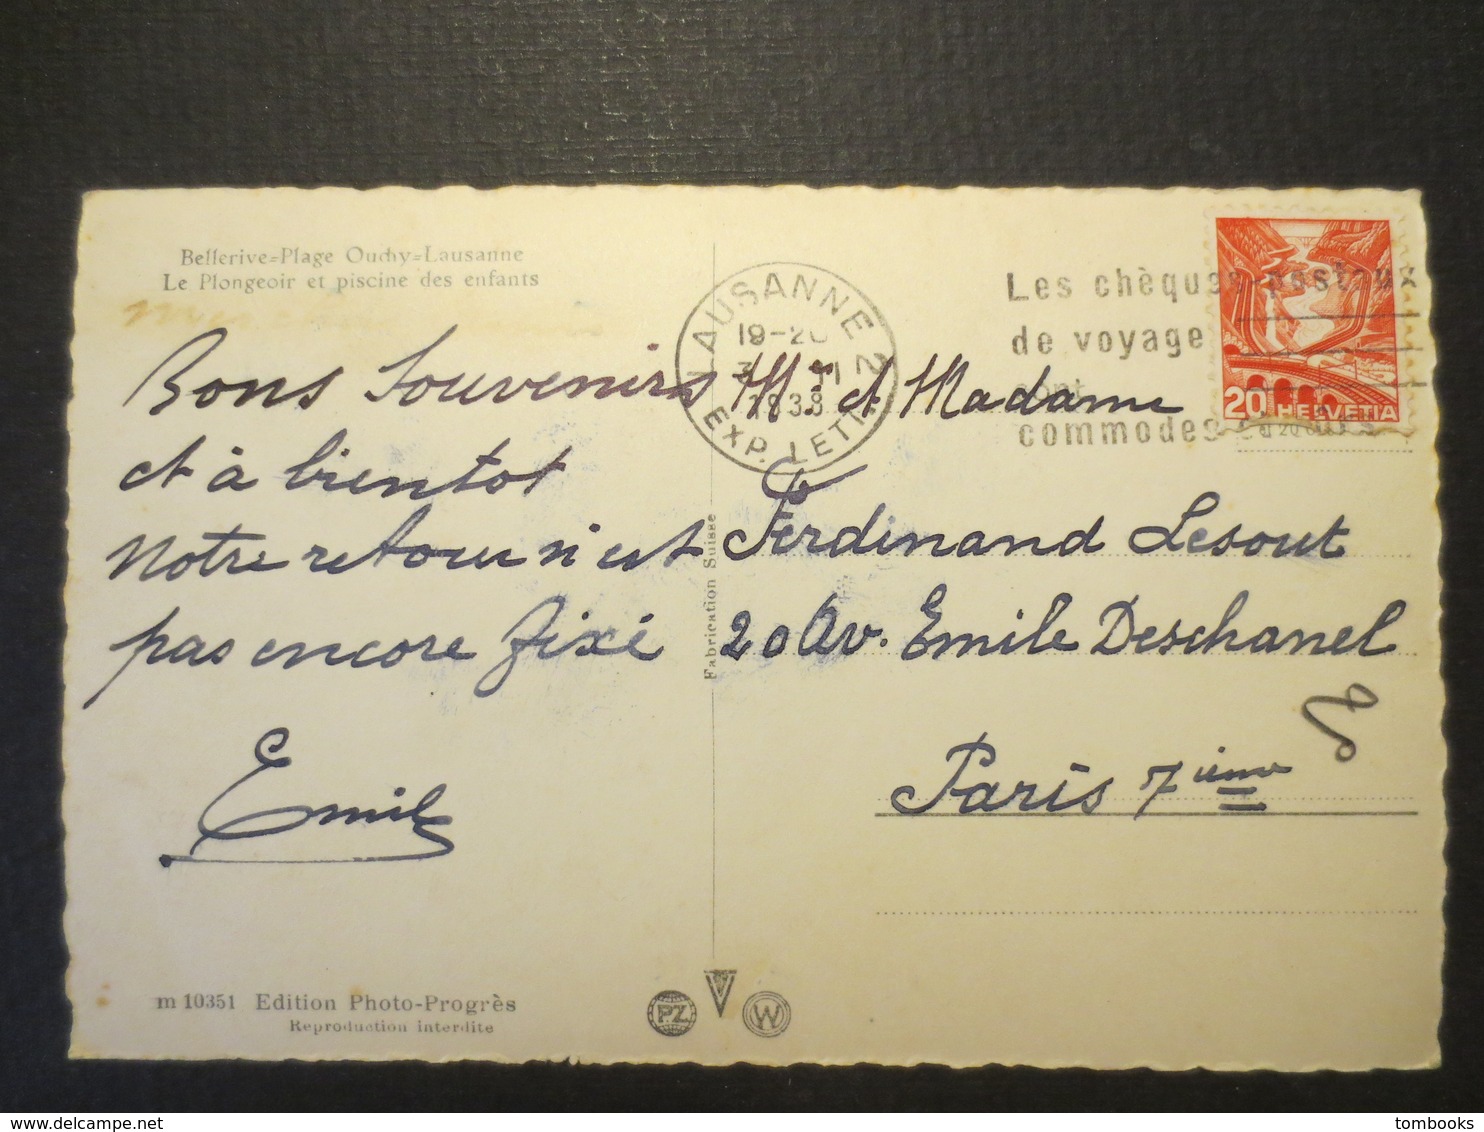 Bellerive-Plage Ouchy-Lausanne
Le Plongeoir et piscine des enfants
Bons Souvenirs
et à bientot
Notre retour n'est
pas encore fixé
Emile
m 10351 Edition Photo-Progrès
Reproduction interdite
Fabrication Suisse
P.Z.
W
LAUSANNE 2
19-20
EXP. LETT.
Les chèques postaux
de voyage
sont
commodes
20 HELVETIA
Mr et Madame
Ferdinand Lesout
20 Av. Emile Deschanel
Paris 7ième
tombooks